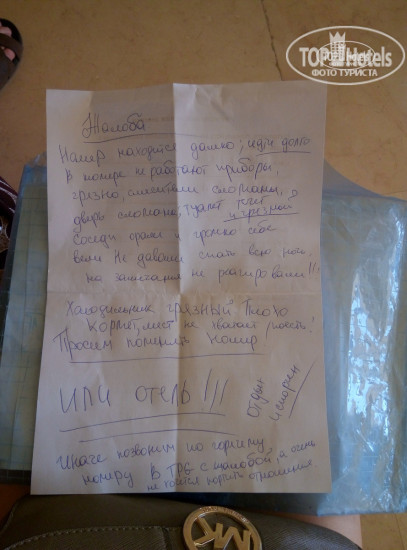 TOP Hotels
ФОТО ТУРИСТА
Жалоба
Номер находится далеко; идти долго
В номере не работают приборы,
грязно, смесители сломаны,
дверь сломана, туалет течёт
и грязный
Соседи орали и громко себе
вели не давали спать всю ночь.
на замечания не реагировали!!!
Холодильник грязный. Плохо
кормят, мест не хватает
Просим поменять номер
или отель!!!
отдых
испорчен
Иначе позвоним по горячему
номеру в с жалобой, а очень
не хотелось портить отношения
MK